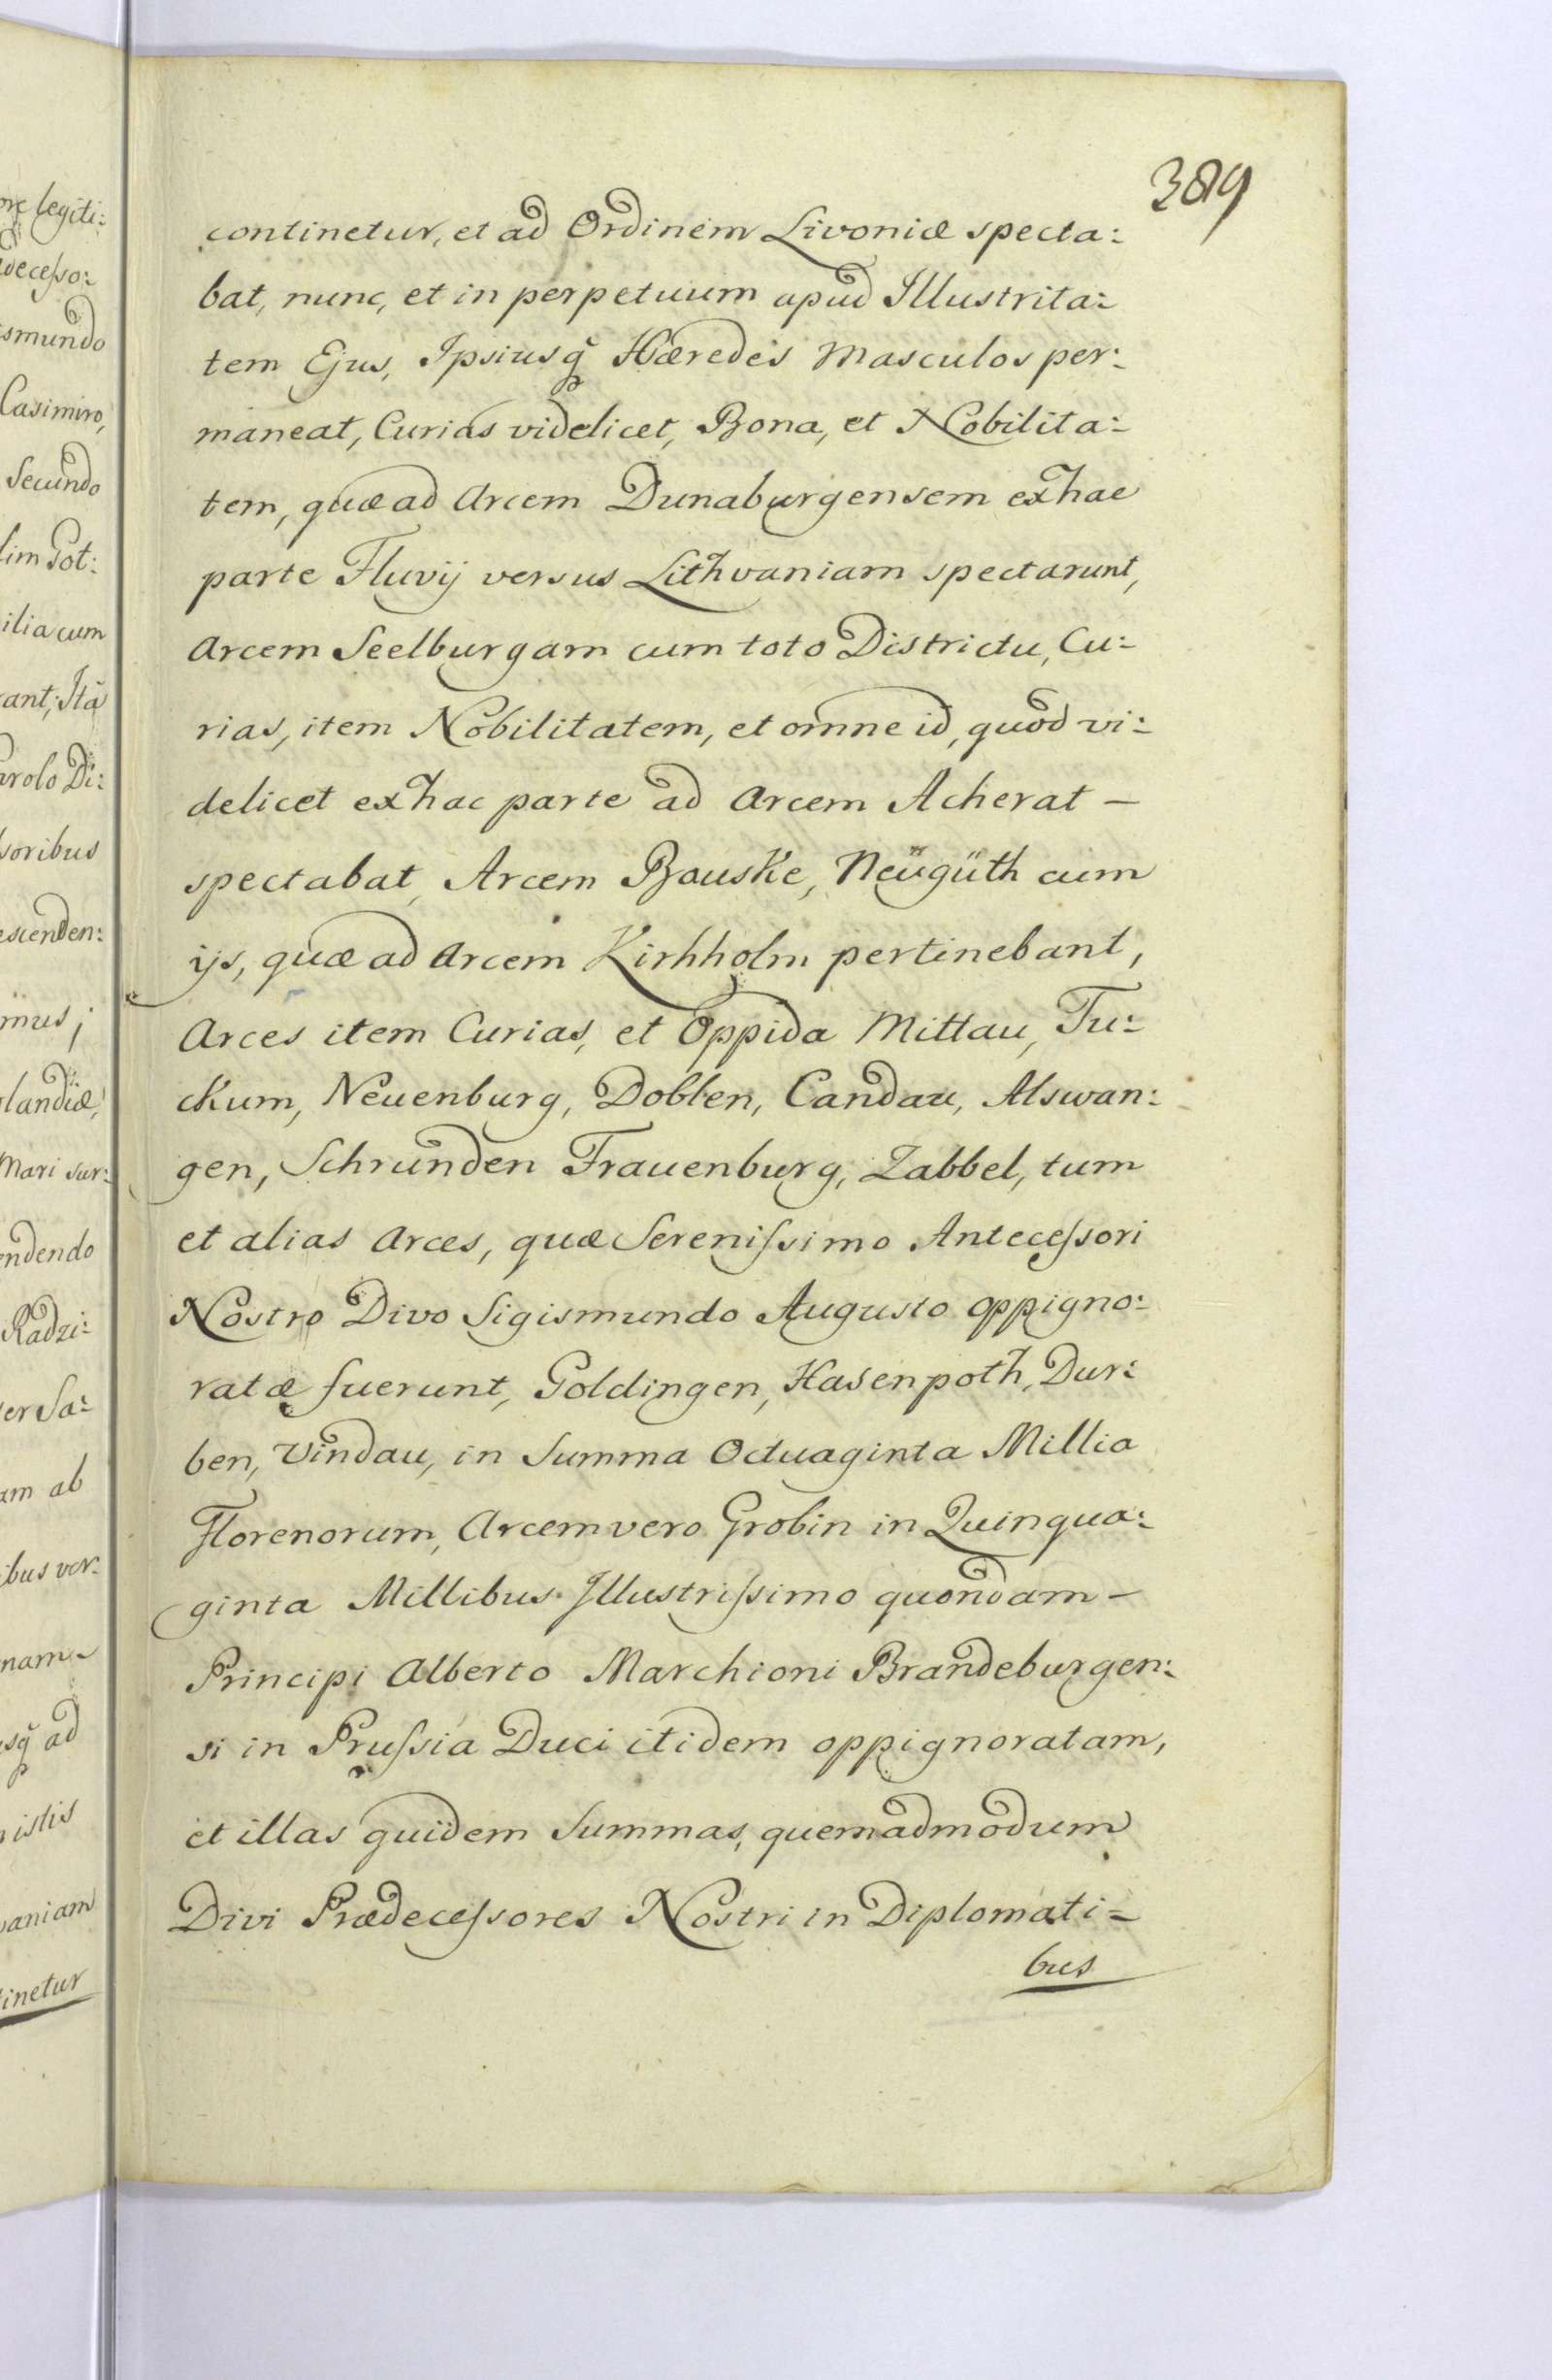 389
continetur, et ad Ordinem Livoniæ specta:
bat, nunc, et in perpetuum apud Illustrita:
tem Ejus, Ipsiusq̃ Hæredes Masculos per:
maneat, Curias videlicet, Bona, et Nobilita:
tem, quæ ad Arcem Dunaburgensem ex hac
parte Fluvij versus Lithvaniam spectarunt,
Arcem Seelburgam cum toto Districtu, Cu:
rias, item Nobilitatem, et omne id, quod vi:
delicet ex hac parte ad Arcem Acherat —
spectabat, Arcem Bauske, Neügüth cum
ijs, quæ ad Arcem Kirhholm pertinebant,
Arces item Curias, et Oppida Mittau, Tu:
ckum, Neuenburg, Doblen, Candau, Alswan:
gen, Schrunden Frauenburg, Zabbel, tum
et alias Arces, quæ Serenissimo Antecessori
Nostro Divo Sigismundo Augusto oppigno:
ratæ fuerunt, Goldingen, Hasenpoth, Dur:
ben, Vindau, in Summa Octuaginta Millia
Florenorum, Arcem vero Grobin in Quinqua:
ginta Millibus Illustrissimo quondam —
Principi Alberto Marchioni Brandeburgen:
si in Prussia Duci itidem oppignoratam,
et illas quidem Summas, quemadmodum
Divi Prædecessores Nostri in Diplomati=
bus